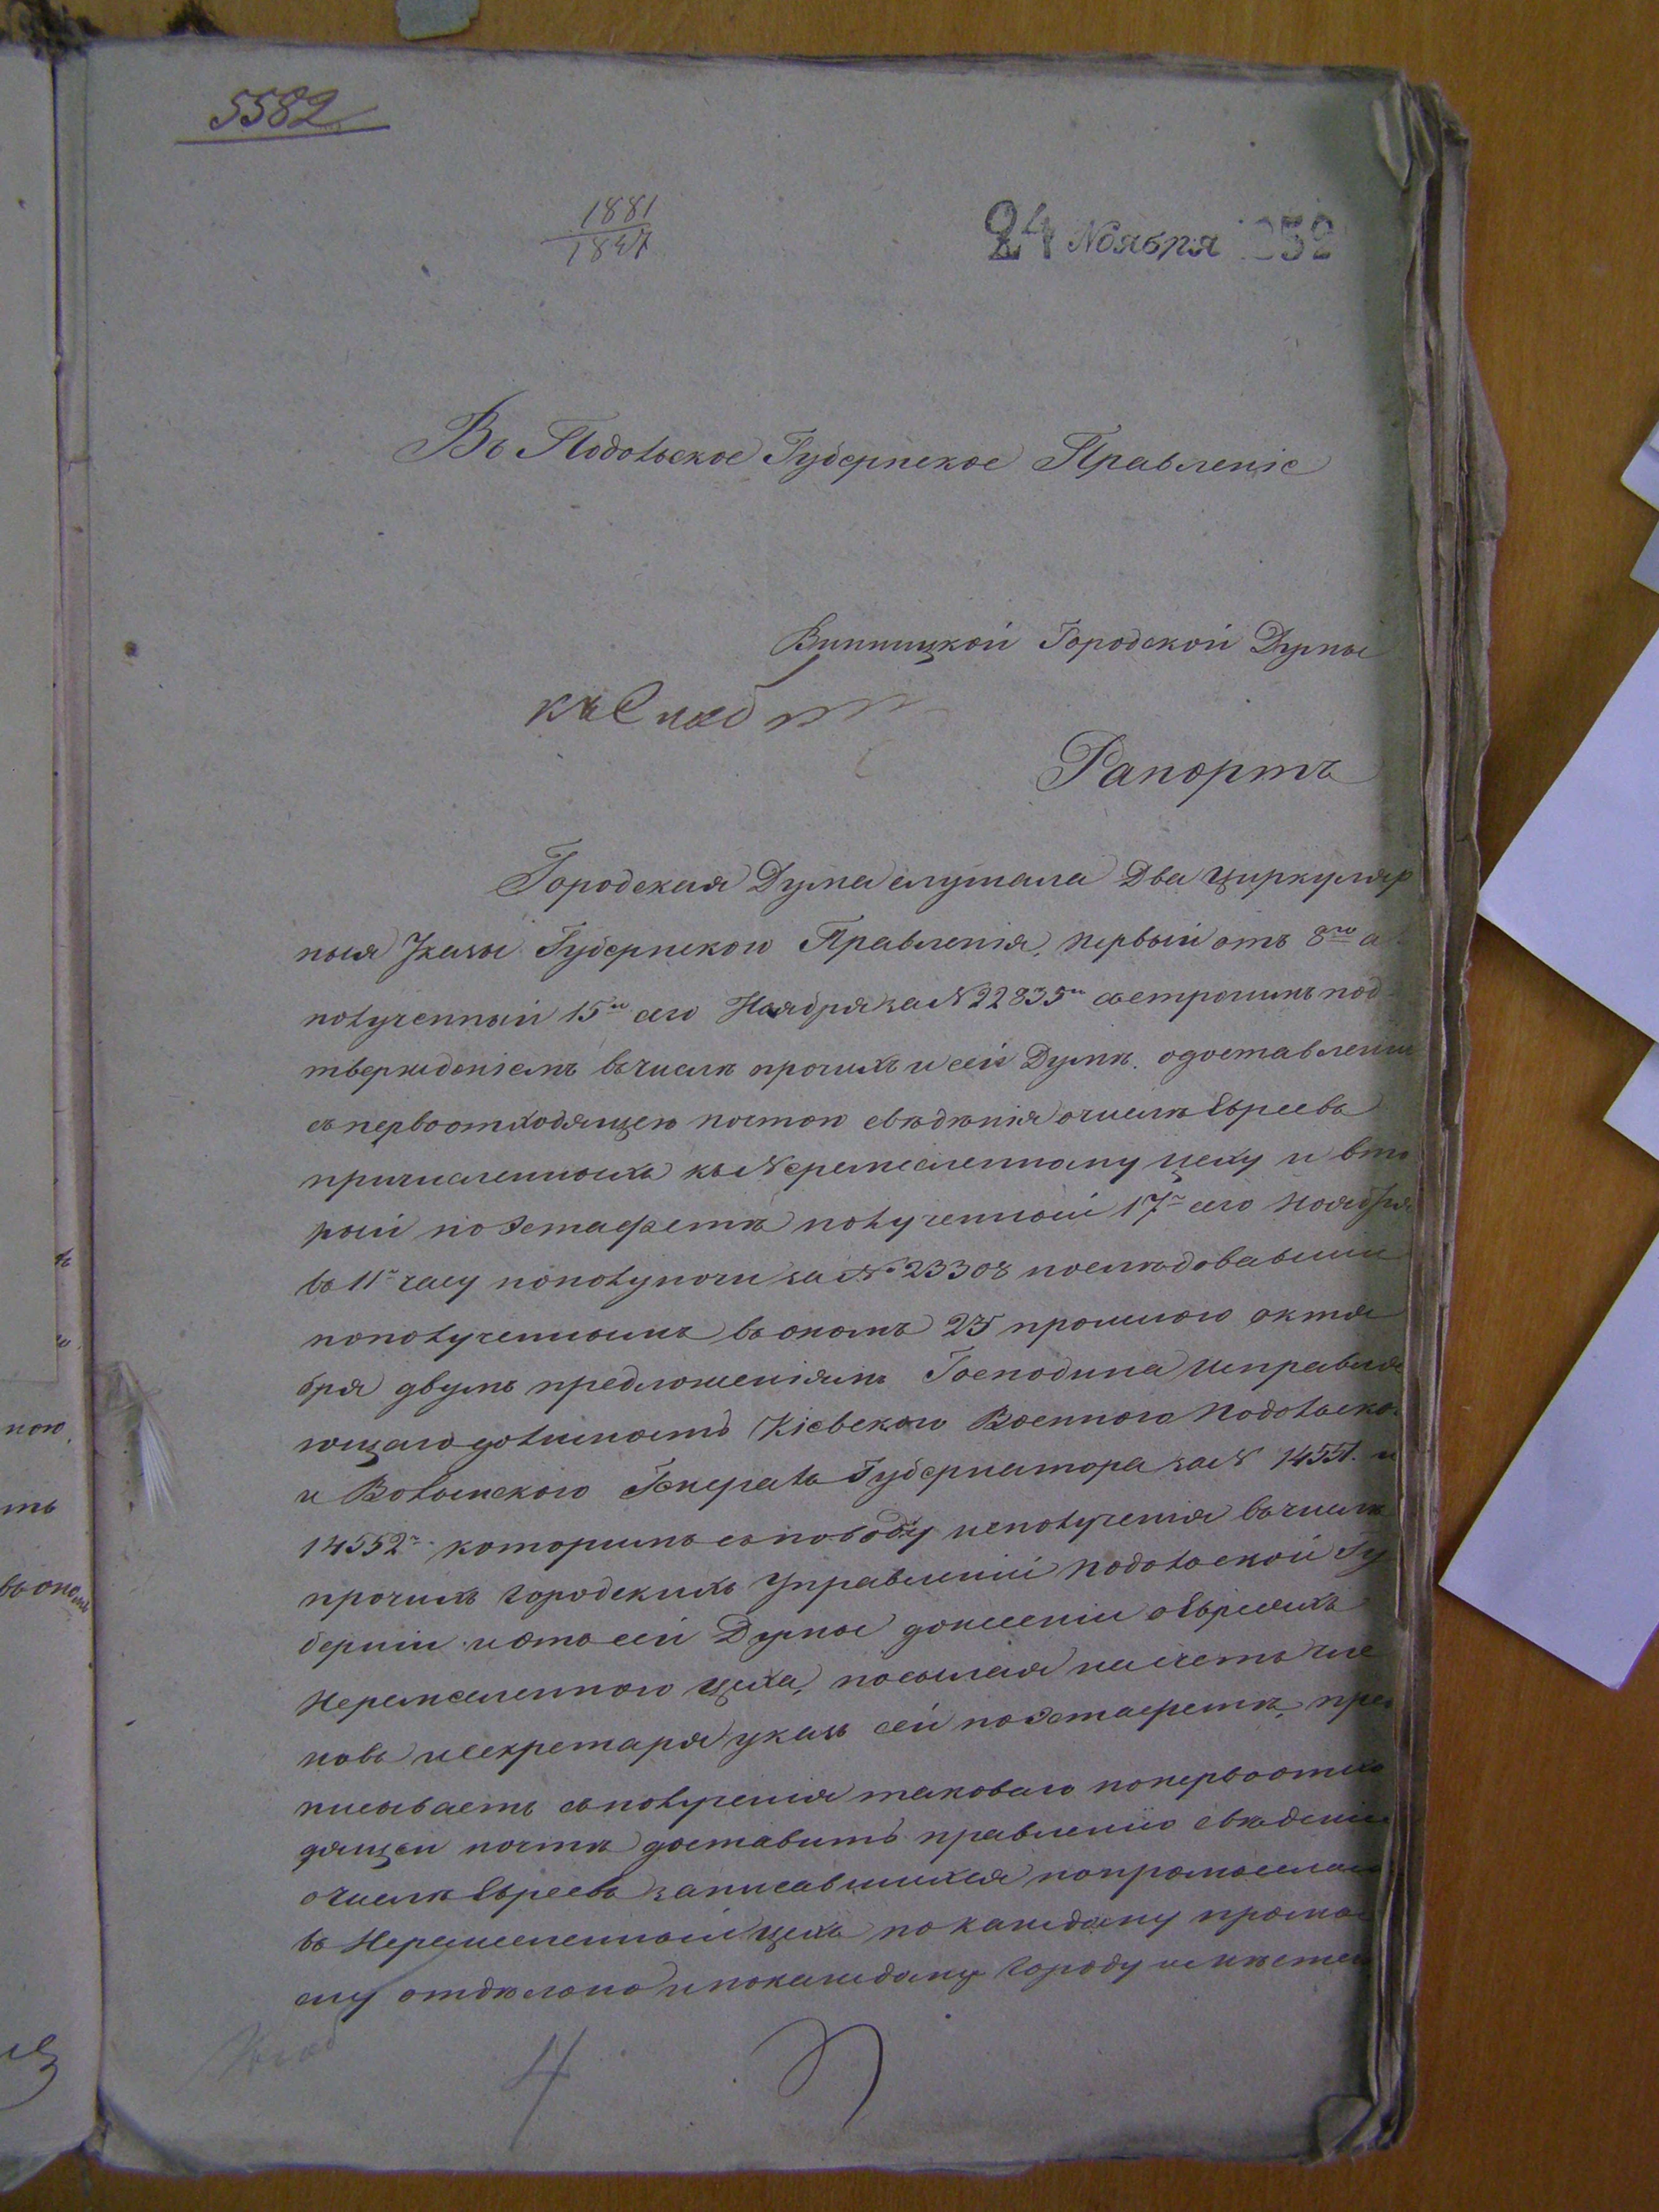 5582
1881
1847
24 Ноября 1852
Въ Подольское Губернское Правленіе
Винницкой Городской Думы
къ
Рапортъ
Городская Дума слушала два циркуляр
ныя Указы Губернского Правленія, первый отъ 8го а
полученный 15го сего Ноября за № 22835м съ строгимъ под
твержденіемъ въ числѣ прочихъ и сей Думѣ. о доставленіи
съ первоотходящею почтою свѣдѣнія о числѣ Евреевъ
причисленныхъ къ Неремесленному цеху и вто
рый по Эстафетѣ полученный 17го сего Ноября
въ 11м часу пополуночи за № 23308 послѣдовавшій
по полученнымъ въ ономъ 25 прошлого октя
бря двумъ предложеніямъ Господина Исправля
ющаго должность Кіевского Военного Подольско
и Волынского Генералъ Губернатора за № 14551. и
14552м которымъ съ поводу неполученія въ числѣ
прочихъ городскихъ Управленій Подольской Гу
берніи и отъ сей Думы донесеніи о Евреяхъ
Неремесленного цеха, посылая на счетъ чле
новъ и секретаря указъ сей по эстафетѣ, пред
писываетъ съ полученія таковаго по первоотхо
дящей почтѣ доставить правленію свѣденіе
о числѣ Евреевъ записавшихся по промысламъ
въ Неремесленный цехъ по каждому промы
слу отдѣльно и по каждому городу и мѣстеч
4